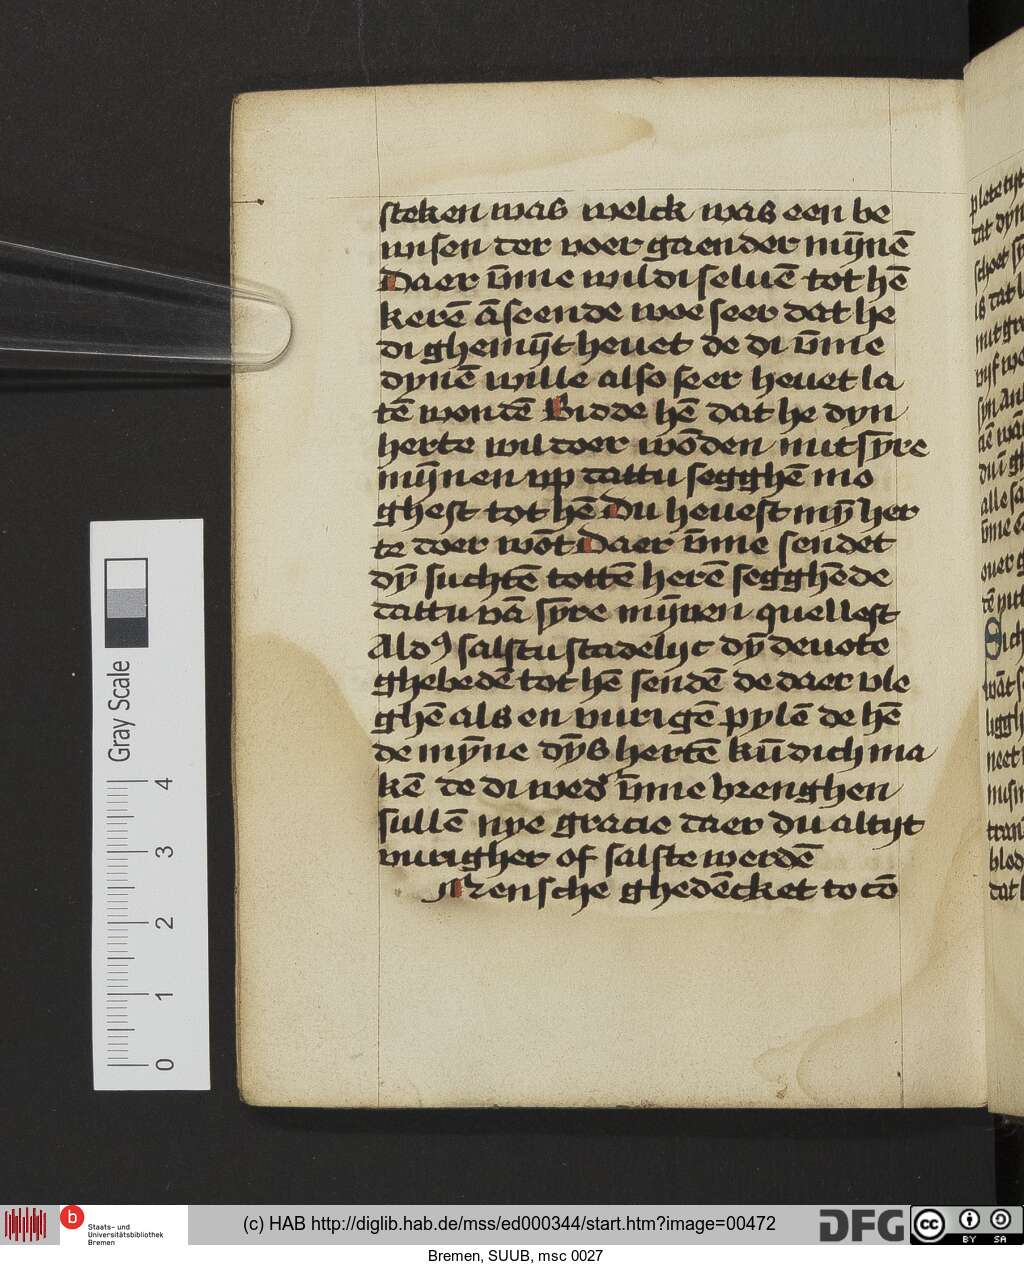 steken was welck was een be
wisen der voer gaender mȳnē
Daer v̄me wildi seluē tot hē
kerē āseende woe seer dat he
di ghemȳt heuet de di v̄me
dynē wille also seer heuet la
tē wondē Bidde hē dat he dyn
herte wil doer wōden mit sȳre
mȳnen vp dattu segghē mo
ghest tot hē Du heuest mȳ her
te doer wōt Daer v̄me sendet
dȳ suchtē tottē herē segghēde
dattu vā sȳre mȳnen quellest
Aldꝰ salstu stadelijc dȳ deuote
ghebedē tot hē sendē de daer vle
ghē als en vurigē pylē de hē
de mȳne dȳs hertē kūdich ma
kē de di wed' v̄me brenghen
sullē nye gracie daer du altijt
vurigher of salste werdē
Mensche ghedēcket to cō
Gray Scale
4
3
2
1
0
Staats- und
Universitätsbibliothek
Bremen
(c) HAB http://diglib.hab.de/mss/ed000344/start.htm?image=00472
DFG
cc BY SA
Bremen, SUUB, msc 0027